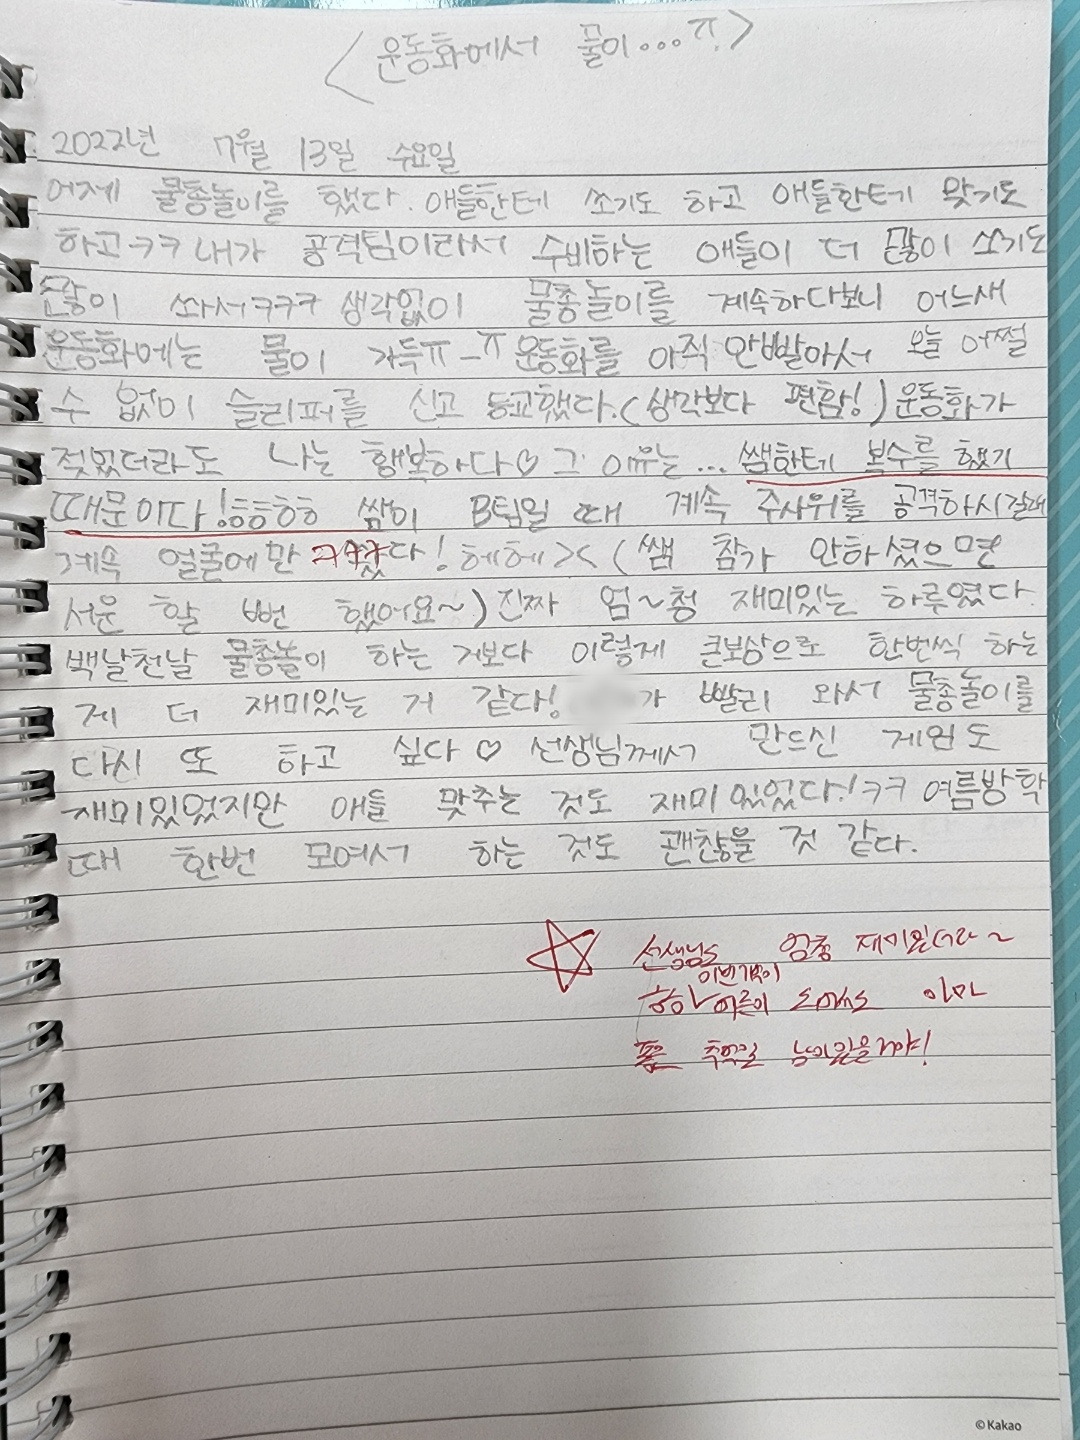 <운동화에서 물이...ㅠ>
2022년 7월 13일 수요일
어제 물총놀이를 했다. 애들한테 쏘기도 하고 애들한테 맞기도
하고ㅋㅋ 내가 공격팀이라서 수비하는 애들이 더 많이 쏘기도
많이 쏴서ㅋㅋㅋ 생각없이 물총놀이를 계속하다보니 어느새
운동화에는 물이 가득ㅠ_ㅠ 운동화를 아직 안빨아서 오늘 어쩔
수 없이 슬리퍼를 신고 등교했다.(생각보다 편함!) 운동화가
젖었더라도 나는 행복하다♡ 그 이유는... 쌤한테 복수를 했기
때문이다! 흐흐흐흐 쌤이 B팀일 때 계속 주사위를 공격하시길래
계속 얼굴에만 다! 헤헤>< (쌤 참가 안하셨으면
서운 할 뻔 했어요~) 진짜 엄~청 재미있는 하루였다.
백날천날 물총놀이 하는 거보다 이렇게 큰보상으로 한번씩 하는
게 더 재미있는 거 같다! 가 빨리 와서 물총놀이를
다시 또 하고 싶다♡ 선생님께서 만드신 게임도
재미있었지만 애들 맞추는 것도 재미있었다!ㅋㅋ 여름방학
때 한번 모여서 하는 것도 괜찮을 것 같다.
선생님도 엄청 재미있더라~
이번 기억이
어른이 되어서도 아마
추억으로 남아있을거야!
© Kakao